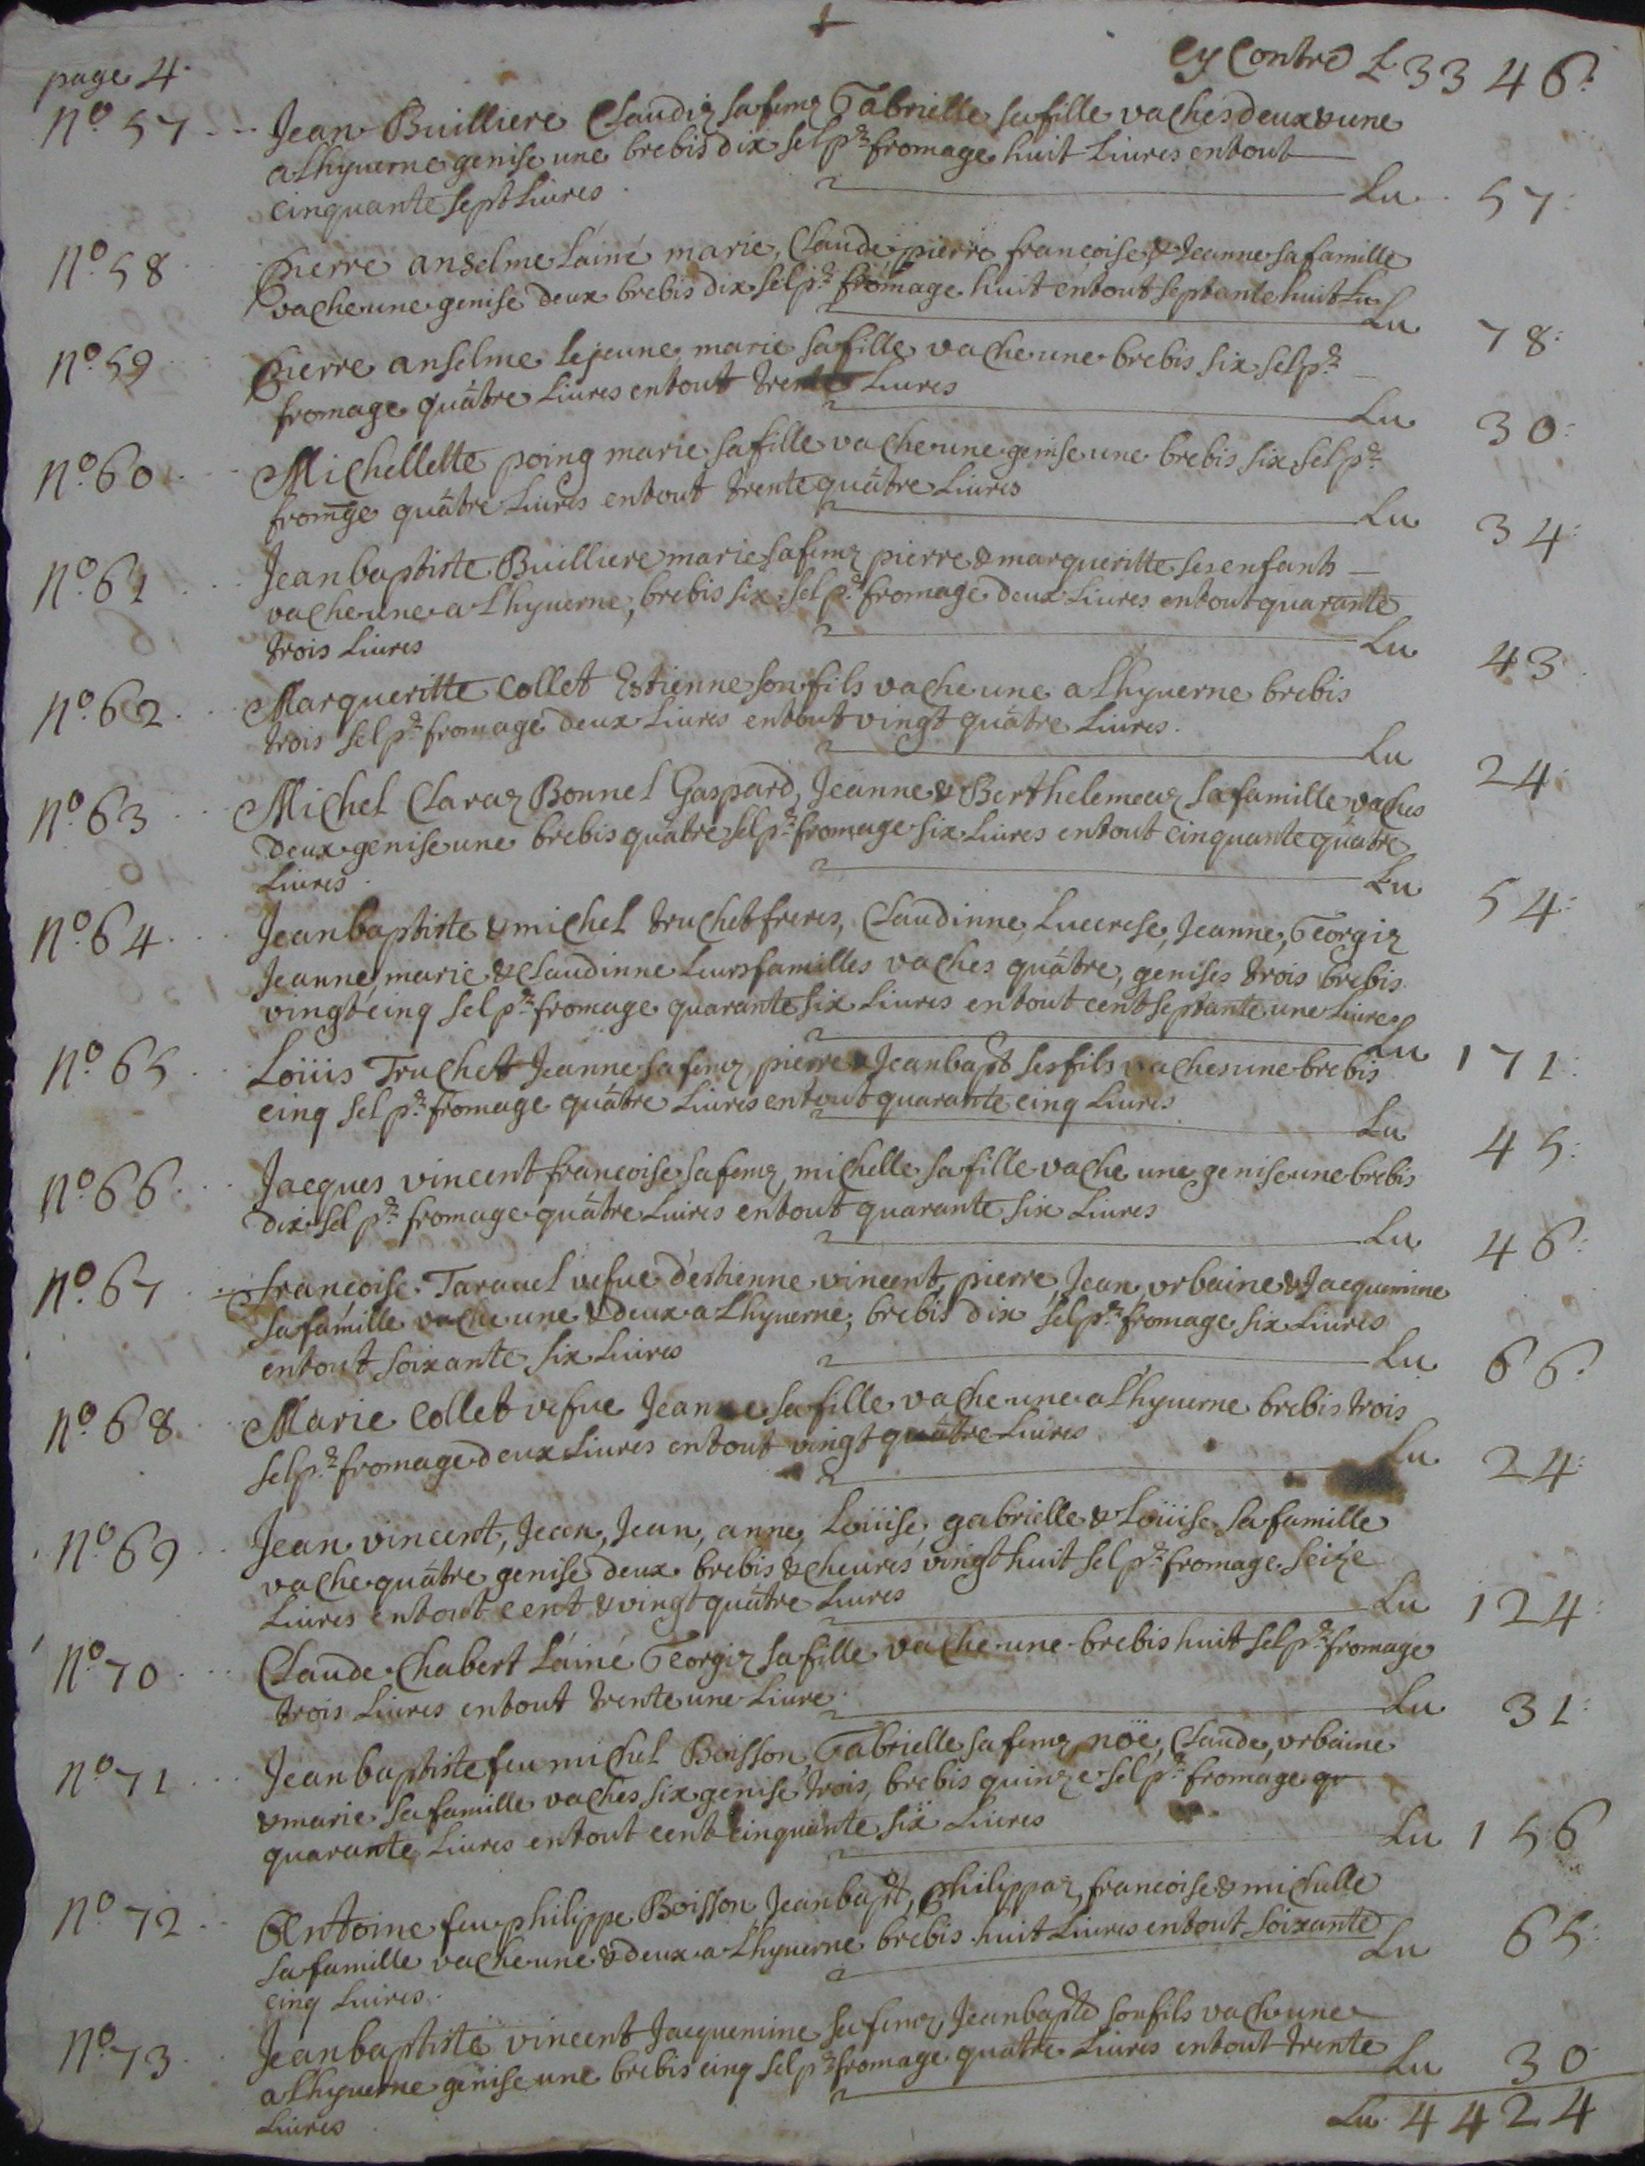 page 4.
cy Contre £ 3346:
N.º 57. Jean Builliere Claudiz sa femz Gabrielle sa fille vaches deux & une
a Lhyuerne genise une brebis dix sel p.r fromage huit Liures entout
cinquante sept Liures. Lu. 57:
N.º 58 pierre anselme L'ainé marie, Claude, pierre françoise, & Jeanne sa famille
vache une genise deux brebis dix sel p.r fromage huit entout septante huit Lu
Lu 78:
N.º 59 pierre anselme Lejeune marie sa fille vache une brebis six sel p.r
fromage quâtre Liures entout trente Liures Lu 30:
N.º 60 Michellette poing marie sa fille vache une genise une brebis six sel p.r
fromge quâtre Liures entout trente quâtre Liures Lu 34:
N.º 61 Jeanbaptiste Builliere marie sa femz pierre & margueritte ses enfants
vache une a Lhyuerne, brebis six sel p.r fromage deux Liures entout quarante
trois Liures Lu 43
N.º 62. Margueritte Collet Estienne son fils vache une a Lhyuerne brebis
trois sel p.r fromage deux Liures entout vingt quâtre Liures. Lu 24:
N.º 63 Michel Claraz Bonnel Gaspard, Jeanne & Berthelemeaz sa famille vaches
deux genise une brebis quâtre sel p.r fromage six Liures entout cinquante quâtre
Liures. Lu 54:
N.º 64. Jeanbaptiste & michel truchet freres, Claudinne, Lucrese, Jeanne, Georgiz
Jeanne, marie & Claudinne Leurs familles vaches quâtre, genises trois brebis
vingt cinq sel p.r fromage quarante six Liures entout cent septante une Liures
Lu 171:
N.º 65 Loüis Truchet Jeanne sa femz pierre & Jeanbapt ses fils vaches une brebis
cinq sel p.r fromage quâtre Liures entout quarante cinq Liures Lu 45:
N.º 66. Jacques vincent françoise sa femz, michelle sa fille vache une genise une brebis
dix sel p.r fromage quâtre Liures entout quarante six Liures Lu 46:
N.º 67 françoise Tarauel vefue d'estienne vincent, pierre, Jean, vrbaine & Jacquemine
sa famille vache une & deux a Lhyuerne, brebis dix sel p.r fromage six Liures
entout soixante six Liures Lu 66:
N.º 68 Marie Collet vefue Jeanne sa fille vache une a Lhyuerne brebis trois
sel p.r fromage deux Liures entout vingt quâtre Liures Lu 24:
N.º 69 Jean vincent, Jean, Jean, anne, Loüise, gabrielle & Loüise sa famille
vache quâtre genise deux brebis & cheures vingt huit sel p.r fromage seize
Liures entout cent & vingt quâtre Liures Lu 124:
N.º 70 Claude Chabert L'ainé Georgiz sa fille vache une brebis huit sel p.r fromage
trois Liures entout trente une Liure. Lu 31:
N.º 71 Jeanbaptiste feu michel Boisson, Gabrielle sa femz noë, Claude, vrbaine
& marie sa famille vaches six genise trois, brebis quinze sel p.r fromage qu
quarante Liures entout cent cinquante six Liures Lu 156
N.º 72 Antoine feu philippe Boisson Jeanbapt, philippaz, françoise & michelle
sa famille vache une & deux a Lhyuerne brebis huit Liures entout soixante
cinq Liures. Lu 65:
N.º 73 Jeanbaptiste vincent Jacquemine sa femz, Jeanbapte son fils vache une
a Lhyuerne genise une brebis cinq sel p.r fromage quatre Liures entout trente
Liures Lu 30
Lu. 4424